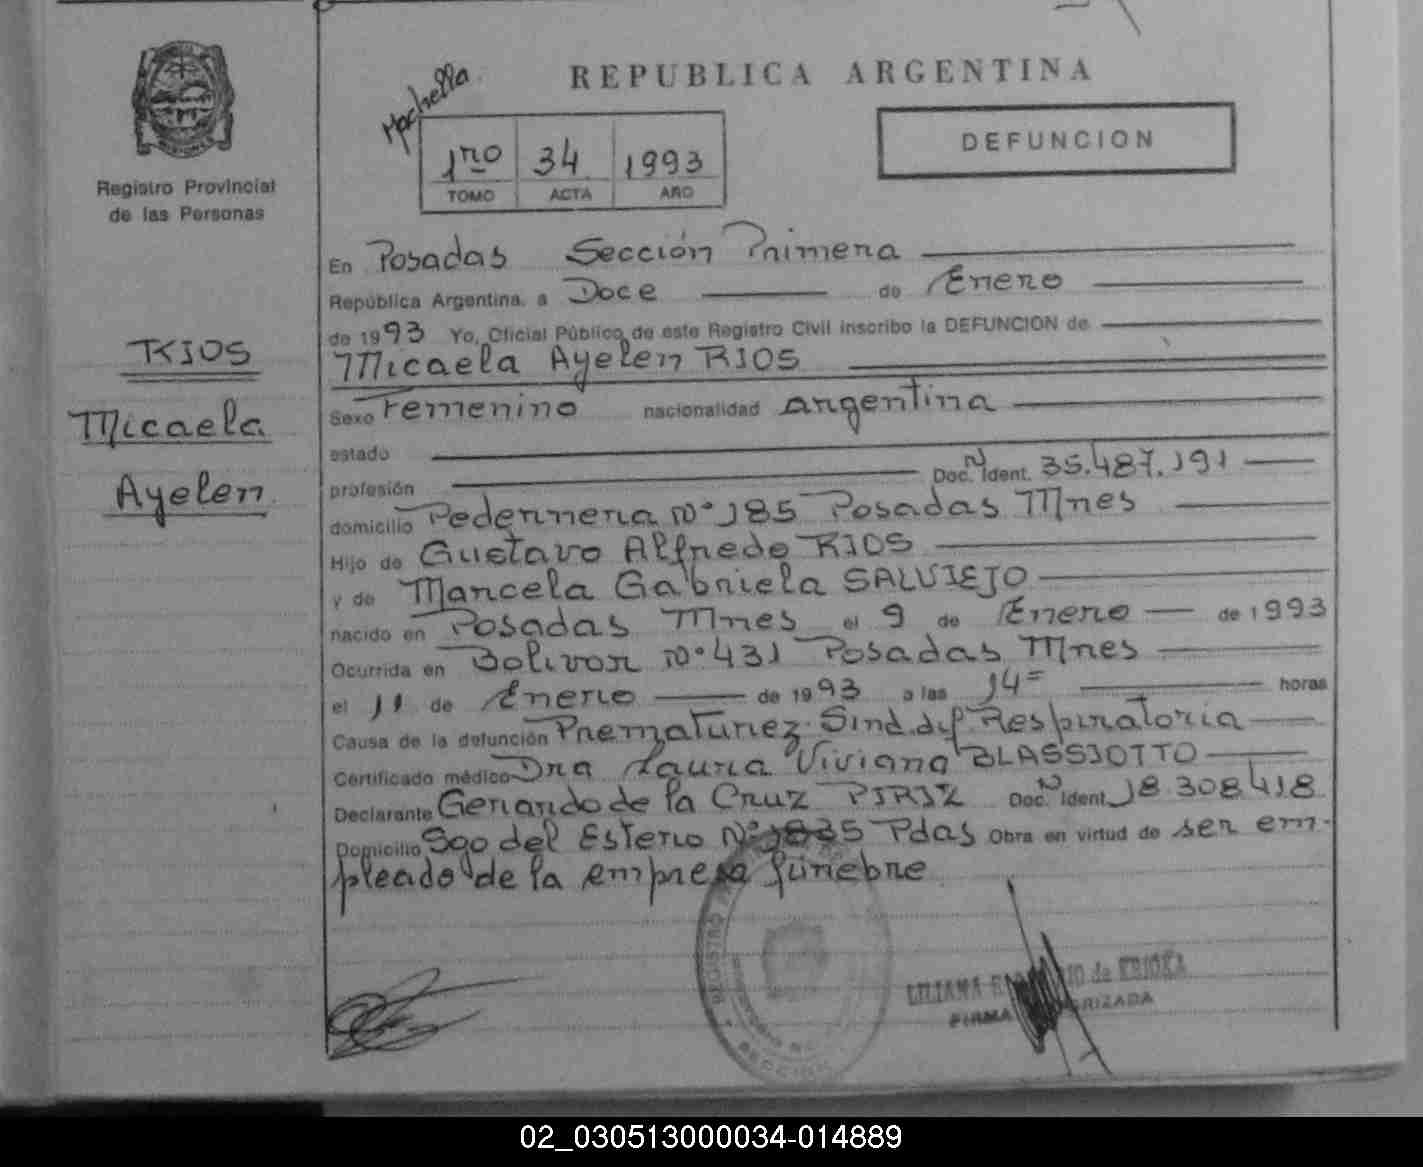 REPUBLICA ARGENTINA
Registro Provincial
de las Personas
1ro 34 1993
TOMO ACTA AÑO
DEFUNCION
RIOS
Micaela
Ayelen
En Posadas Sección Primera
República Argentina, a Doce de Enero
de 1993 Yo, Oficial Público de este Registro Civil inscribo la DEFUNCION de
Micaela Ayelen RIOS
Sexo Femenino nacionalidad argentina
estado
profesión Doc. N Ident. 35.487.191
domicilio Pedernera N° 185 Posadas Mnes
Hijo de Gustavo Alfredo RIOS
y de Marcela Gabriela SALVIEJO
nacido en Posadas Mnes el 9 de Enero de 1993
Ocurrida en Bolivar N° 431 Posadas Mnes
el 11 de Enero de 1993 a las 14= horas
Causa de la defunción Prematurez. Sind. dif. Respiratoria
Certificado médico Dra Laura Viviana BLASSIOTTO
Declarante Gerardo de la Cruz PIRIZ Doc. N Ident. 18.308.418
Domicilio Sgo del Estero N° 1835 Pdas Obra en virtud de ser em-
pleado de la empresa fúnebre
REGISTRO
SECCION
LILIANA de
FIRMA AUTORIZADA
02_030513000034-014889